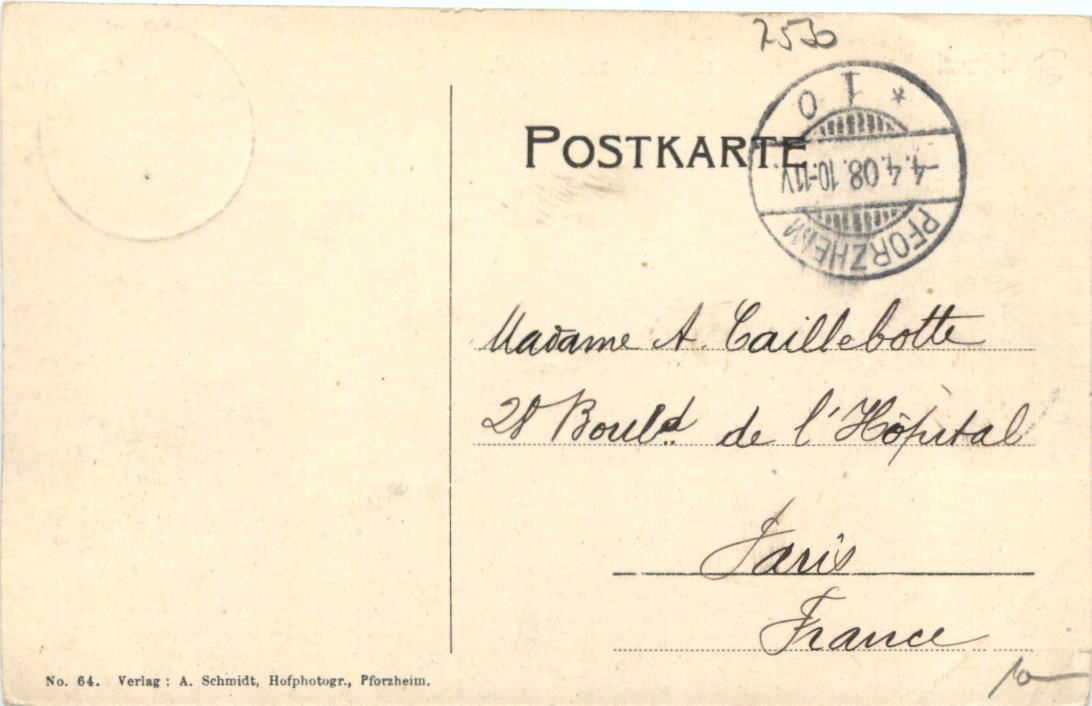 2530
POSTKARTE
* 1 O
4.4.08.10-11V
PFORZHEIM
Madame A. Caillebotte
28 Bould. de l'Hôpital
Paris
France
No. 64. Verlag : A. Schmidt, Hofphotogr., Pforzheim.